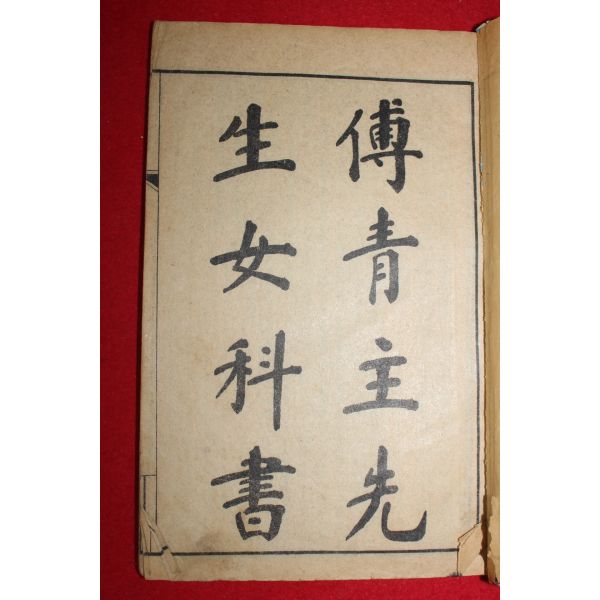 傅青主先
生女科書